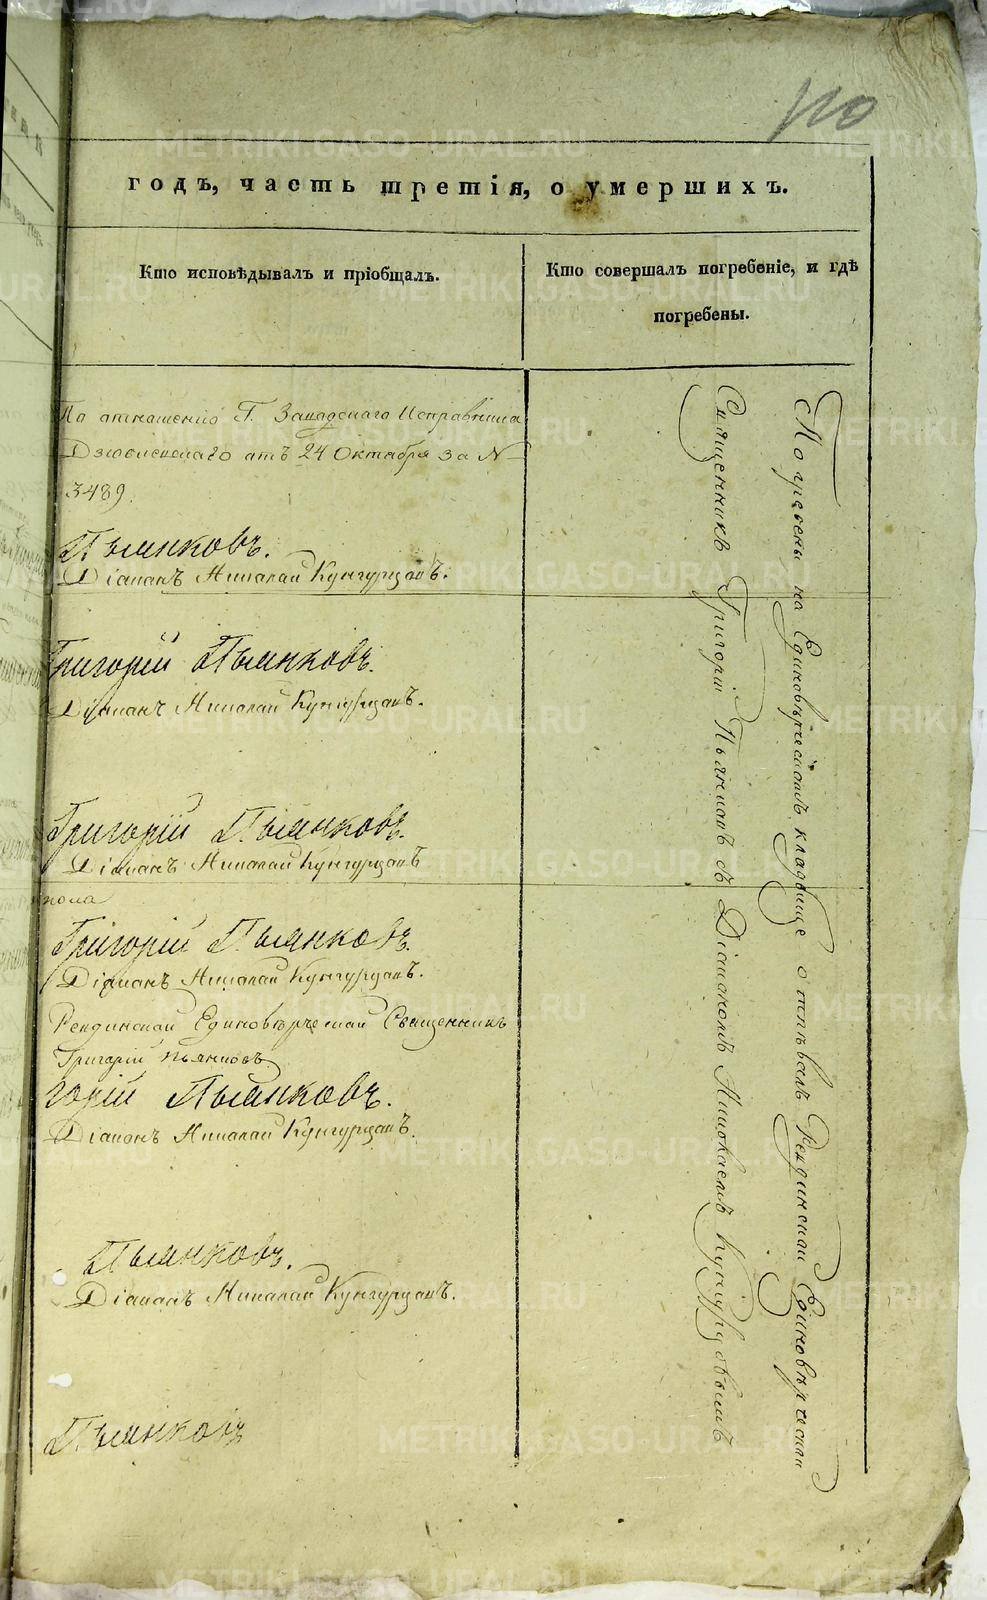 110
годъ, часть третія, о умершихъ.
Кто исповѣдывалъ и пріобщалъ.
Кто совершалъ погребеніе, и гдѣ
погребены.
По отношенію Г. Заводскаго Исправника
отъ 24 Октября за N
3489.
Пьянковъ.
Діаконъ Николай Кунгурцовъ.
Григорій Пьянковъ.
Діаконъ Николай Кунгурцовъ.
Григорій Пьянковъ.
Діаконъ Николай Кунгурцовъ
Григорій Пьянковъ.
Діаконъ Николай Кунгурцовъ.
Ревдинской Единовѣрческой Священникъ
Григорій Пьянковъ
горій Пьянковъ.
Діаконъ Николай Кунгурцовъ.
Пьянковъ.
Діаконъ Николай Кунгурцовъ.
Пьянковъ
Погребены на Единовѣрческомъ кладбище отпѣвалъ Ревдинской Единовѣрческой
Священникъ Григорій Пьянковъ съ Діакономъ Николаемъ Кунгурцовымъ
METRIKI.GASO-URAL.RU